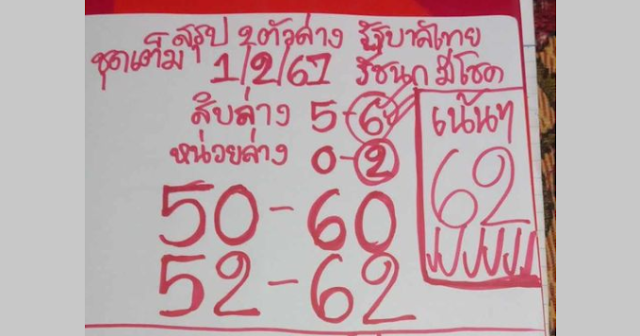 สรุป 2ตัวล่าง รัฐบาลไทย
ชุดเต็ม 1/2/67 รัชนก มีโชค
สิบล่าง 5-6
หน่วยล่าง 0-2
50-60
52-62
เน้นๆ
62